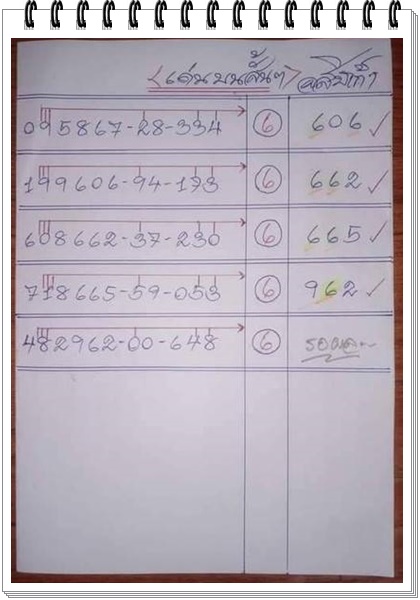 <เด่นบนสั้นๆ>
095867-28-334 6 606 ✓
199606-94-173 6 662 ✓
608662-37-230 6 665 ✓
718665-59-053 6 962 ✓
482962-00-648 6